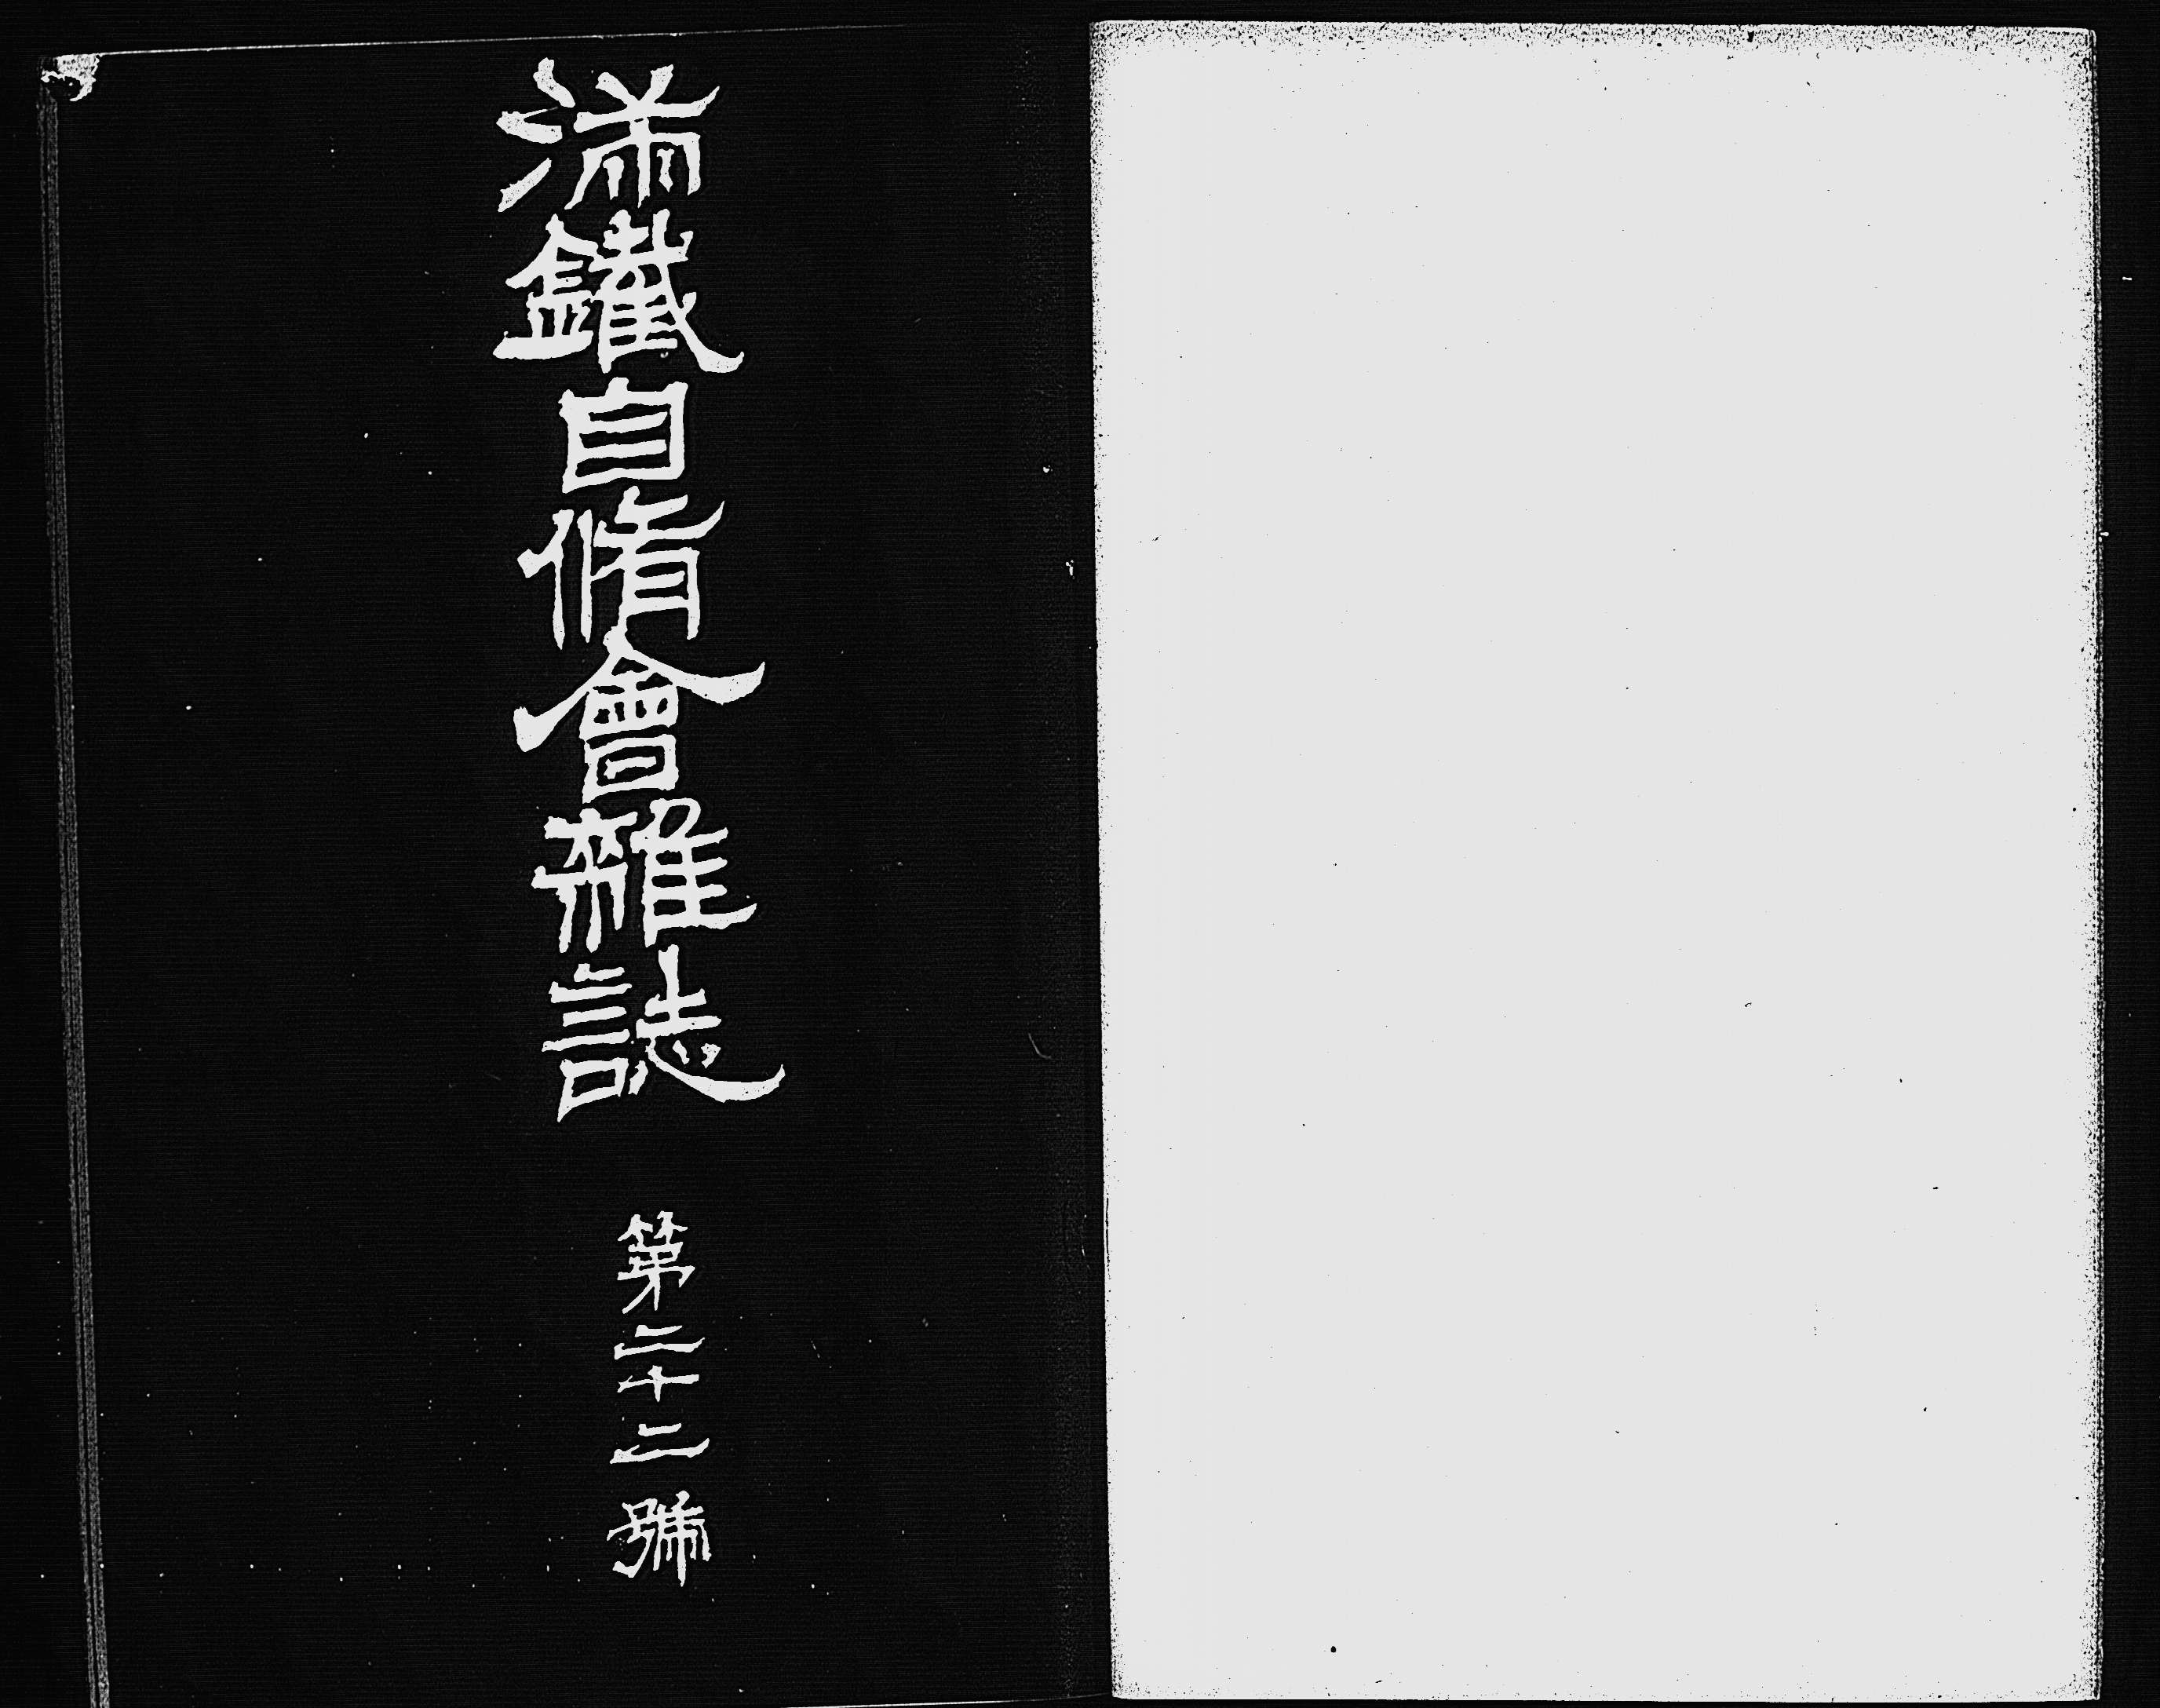 滿鐵自脩會雜誌
第二十二號